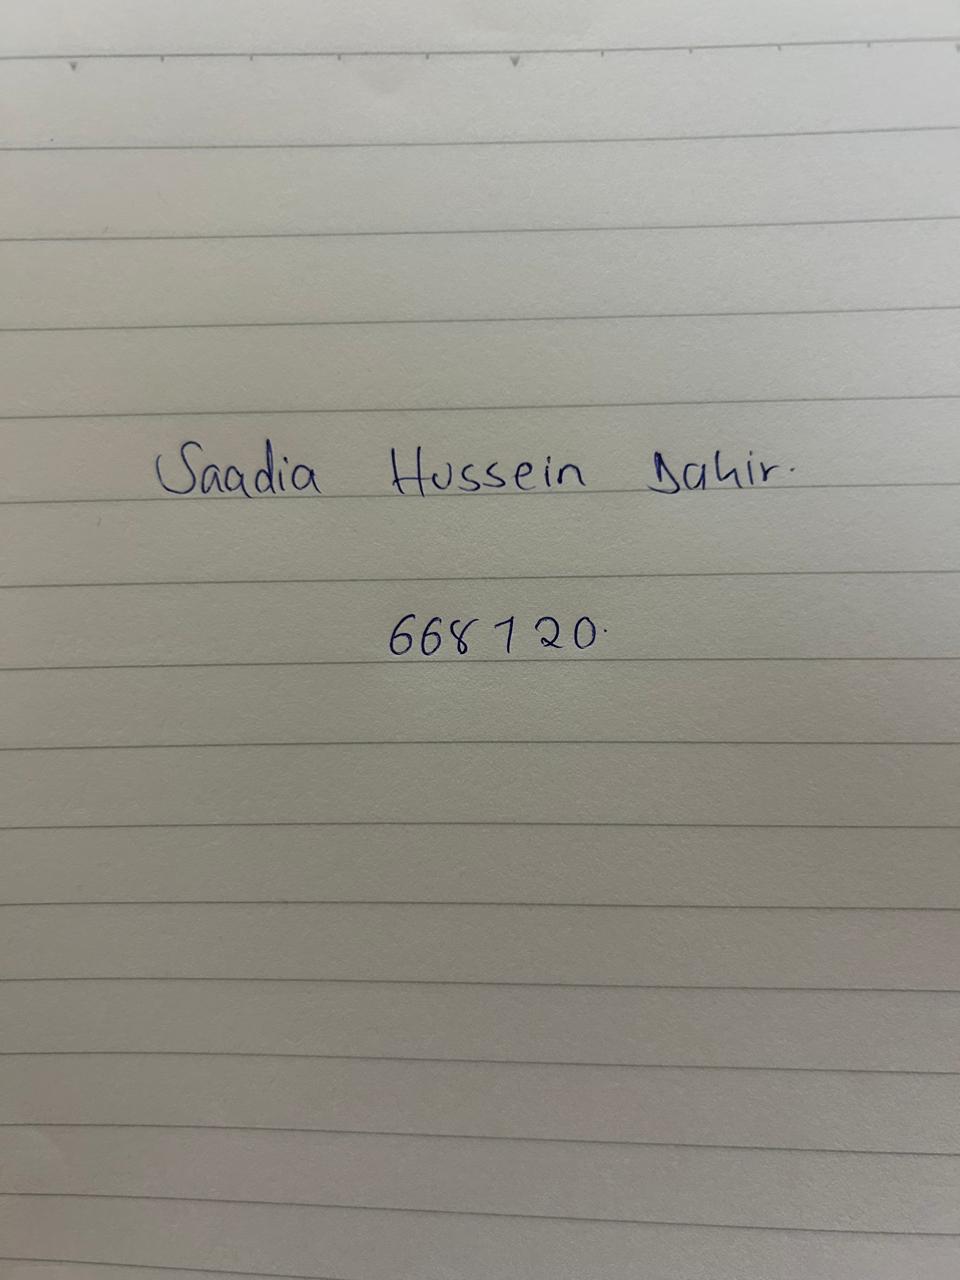 Saadia Hussein Dahir.
668120.